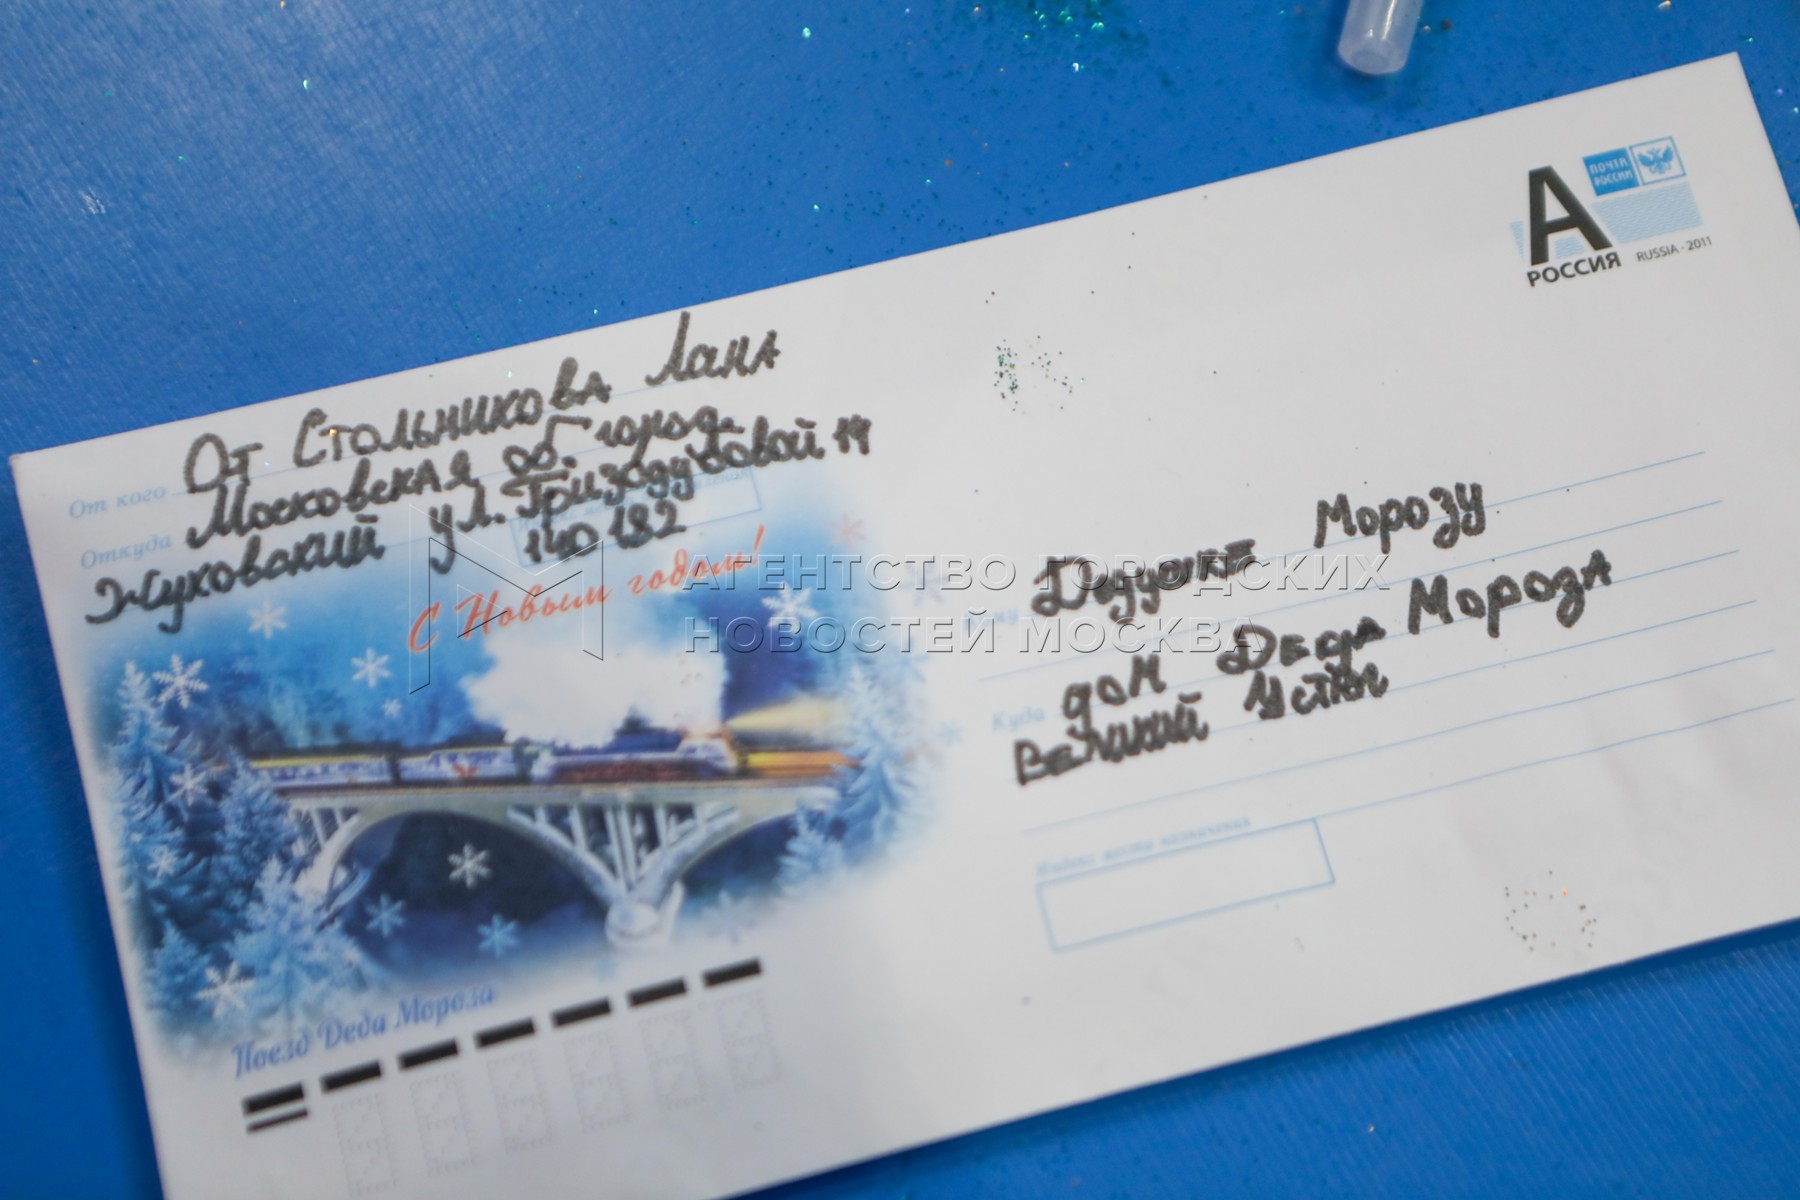 ПОЧТА
РОССИИ
А
РОССИЯ
RUSSIA · 2011
От кого
От Стольникова Лана
Откуда
Московская об. город
Жуховский ул. Гризодубовой 14
140 182
С Новым годом!
Поезд Деда Мороза
Дедушке Морозу
Куда
дом Деда Мороза
Великий Устюг
Индекс места назначения
АГЕНТСТВО ГОРОДСКИХ
НОВОСТЕЙ МОСКВА